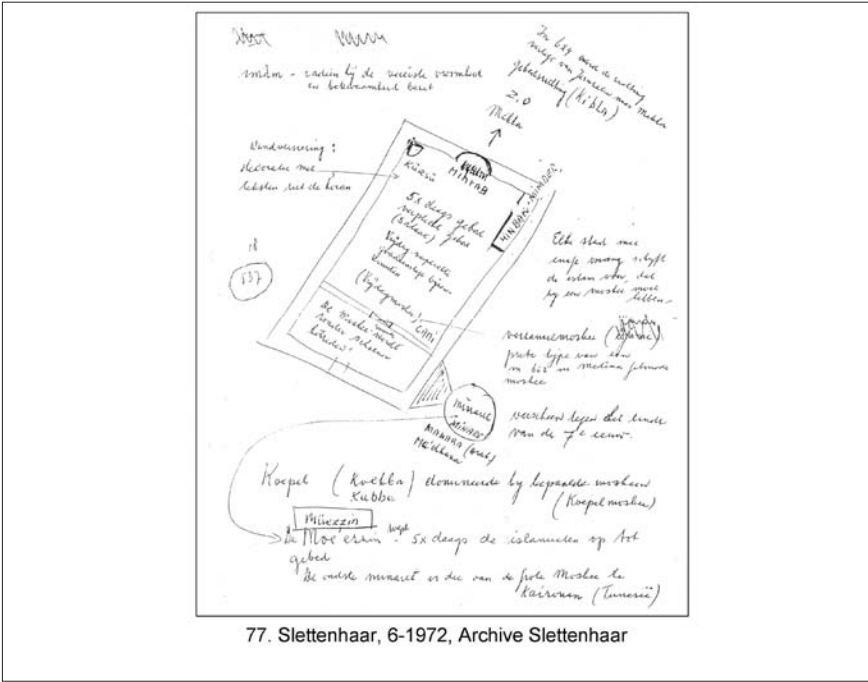 imâm - zodien hij de vereiste vroomheid
en bekwaamheid bezit
In 624 werd de richting
van Jeruzalem naar Mekka
gebedsrichting (Kibla)
Z.O
Mekka
Wandversiering:
decoratie met
teksten uit de koran
Kürsü
MIHRAB
MINBAR-MIMBER
5x daags gebed
verplichte gebed
Vrijdag
(Vrijdagmoskee)
CAMI
De moskee wordt
zonder schoenen
betreden!
18
537
Elke stad met
enige omvang schrijft
de islam voor, dat
hij een moskee moet
hebben.
verzamelmoskee
prototype van een
in 622 in medina gebouwde
moskee
minaret
MINARE
MANARA (arab)
verscheen tegen het einde
van de 7e eeuw.
Koepel (Koebba) domineerde bij bepaalde moskeeën
Kubba
(Koepelmoskee)
Müezzin
De Moe'ezzin roept 5x daags de islamieten op tot
gebed
De oudste minaret is die van de grote Moskee te
Kairouan (Tunesië)
77. Slettenhaar, 6-1972, Archive Slettenhaar